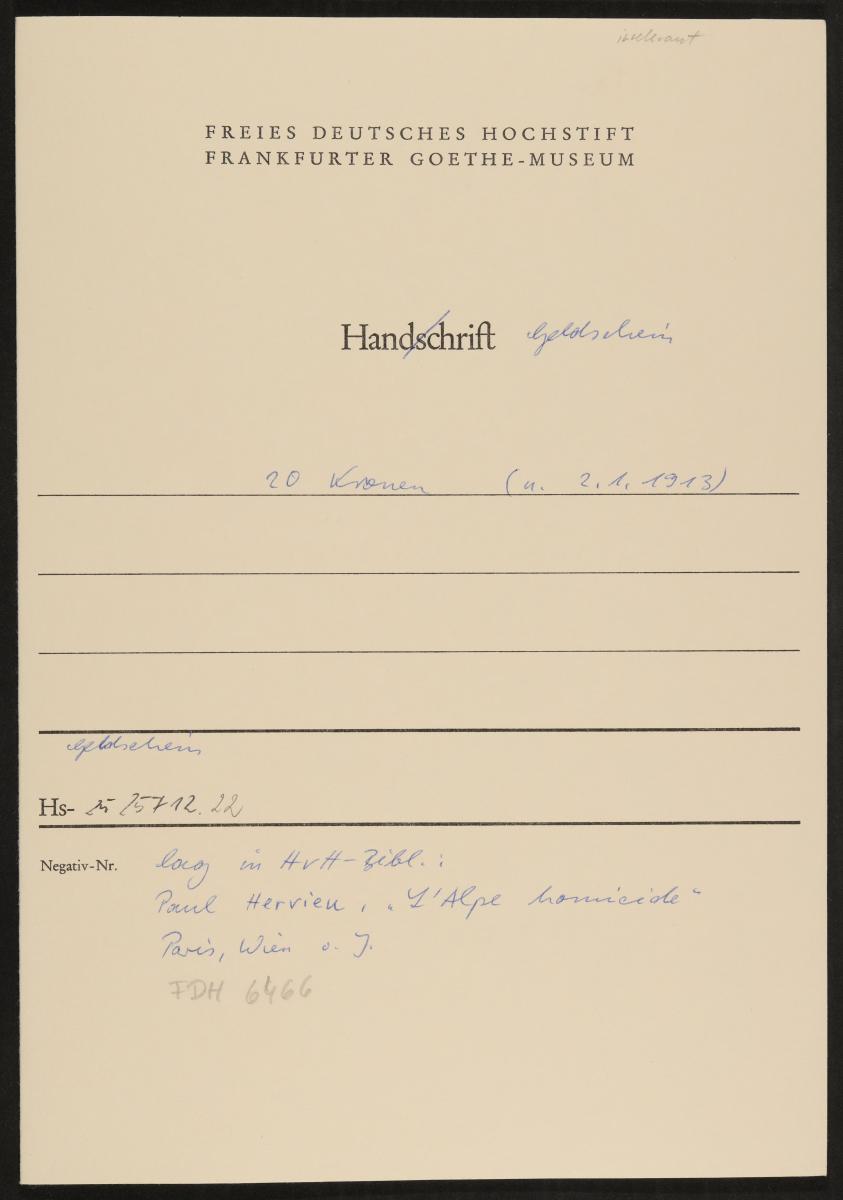 irrelevant
FREIES DEUTSCHES HOCHSTIFT
FRANKFURTER GOETHE-MUSEUM
Handschrift Geldschein
20 Kronen (u. 2.1.1913)
Geldschein
Hs- 22
Negativ-Nr. lag in HvH-Bibl.:
Paul Hervieu, „L'Alpe homicide“
Paris, Wien o. J.
FDH 6466